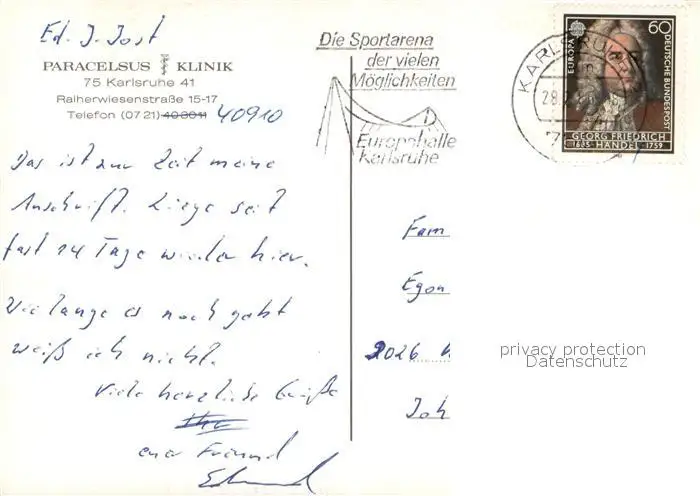 Ed. J. Jost
PARACELSUS KLINIK
75 Karlsruhe 41
Raiherwiesenstraße 15-17
Telefon (0721) 403011 40910
Das ist zur Zeit meine
Anschrift. Liege seit
fast 14 Tage wieder hier.
Wie lange es noch geht
weiß ich nicht.
Viele herzliche Grüße
Ihr
euer Freund
Die Sportarena
der vielen
Möglichkeiten
Europahalle
Karlsruhe
KARLSRUHE
28
EUROPA
60
DEUTSCHE BUNDESPOST
GEORG FRIEDRICH
1685 HÄNDEL 1759
Fam
Egon
2026
Joh
privacy protection
Datenschutz